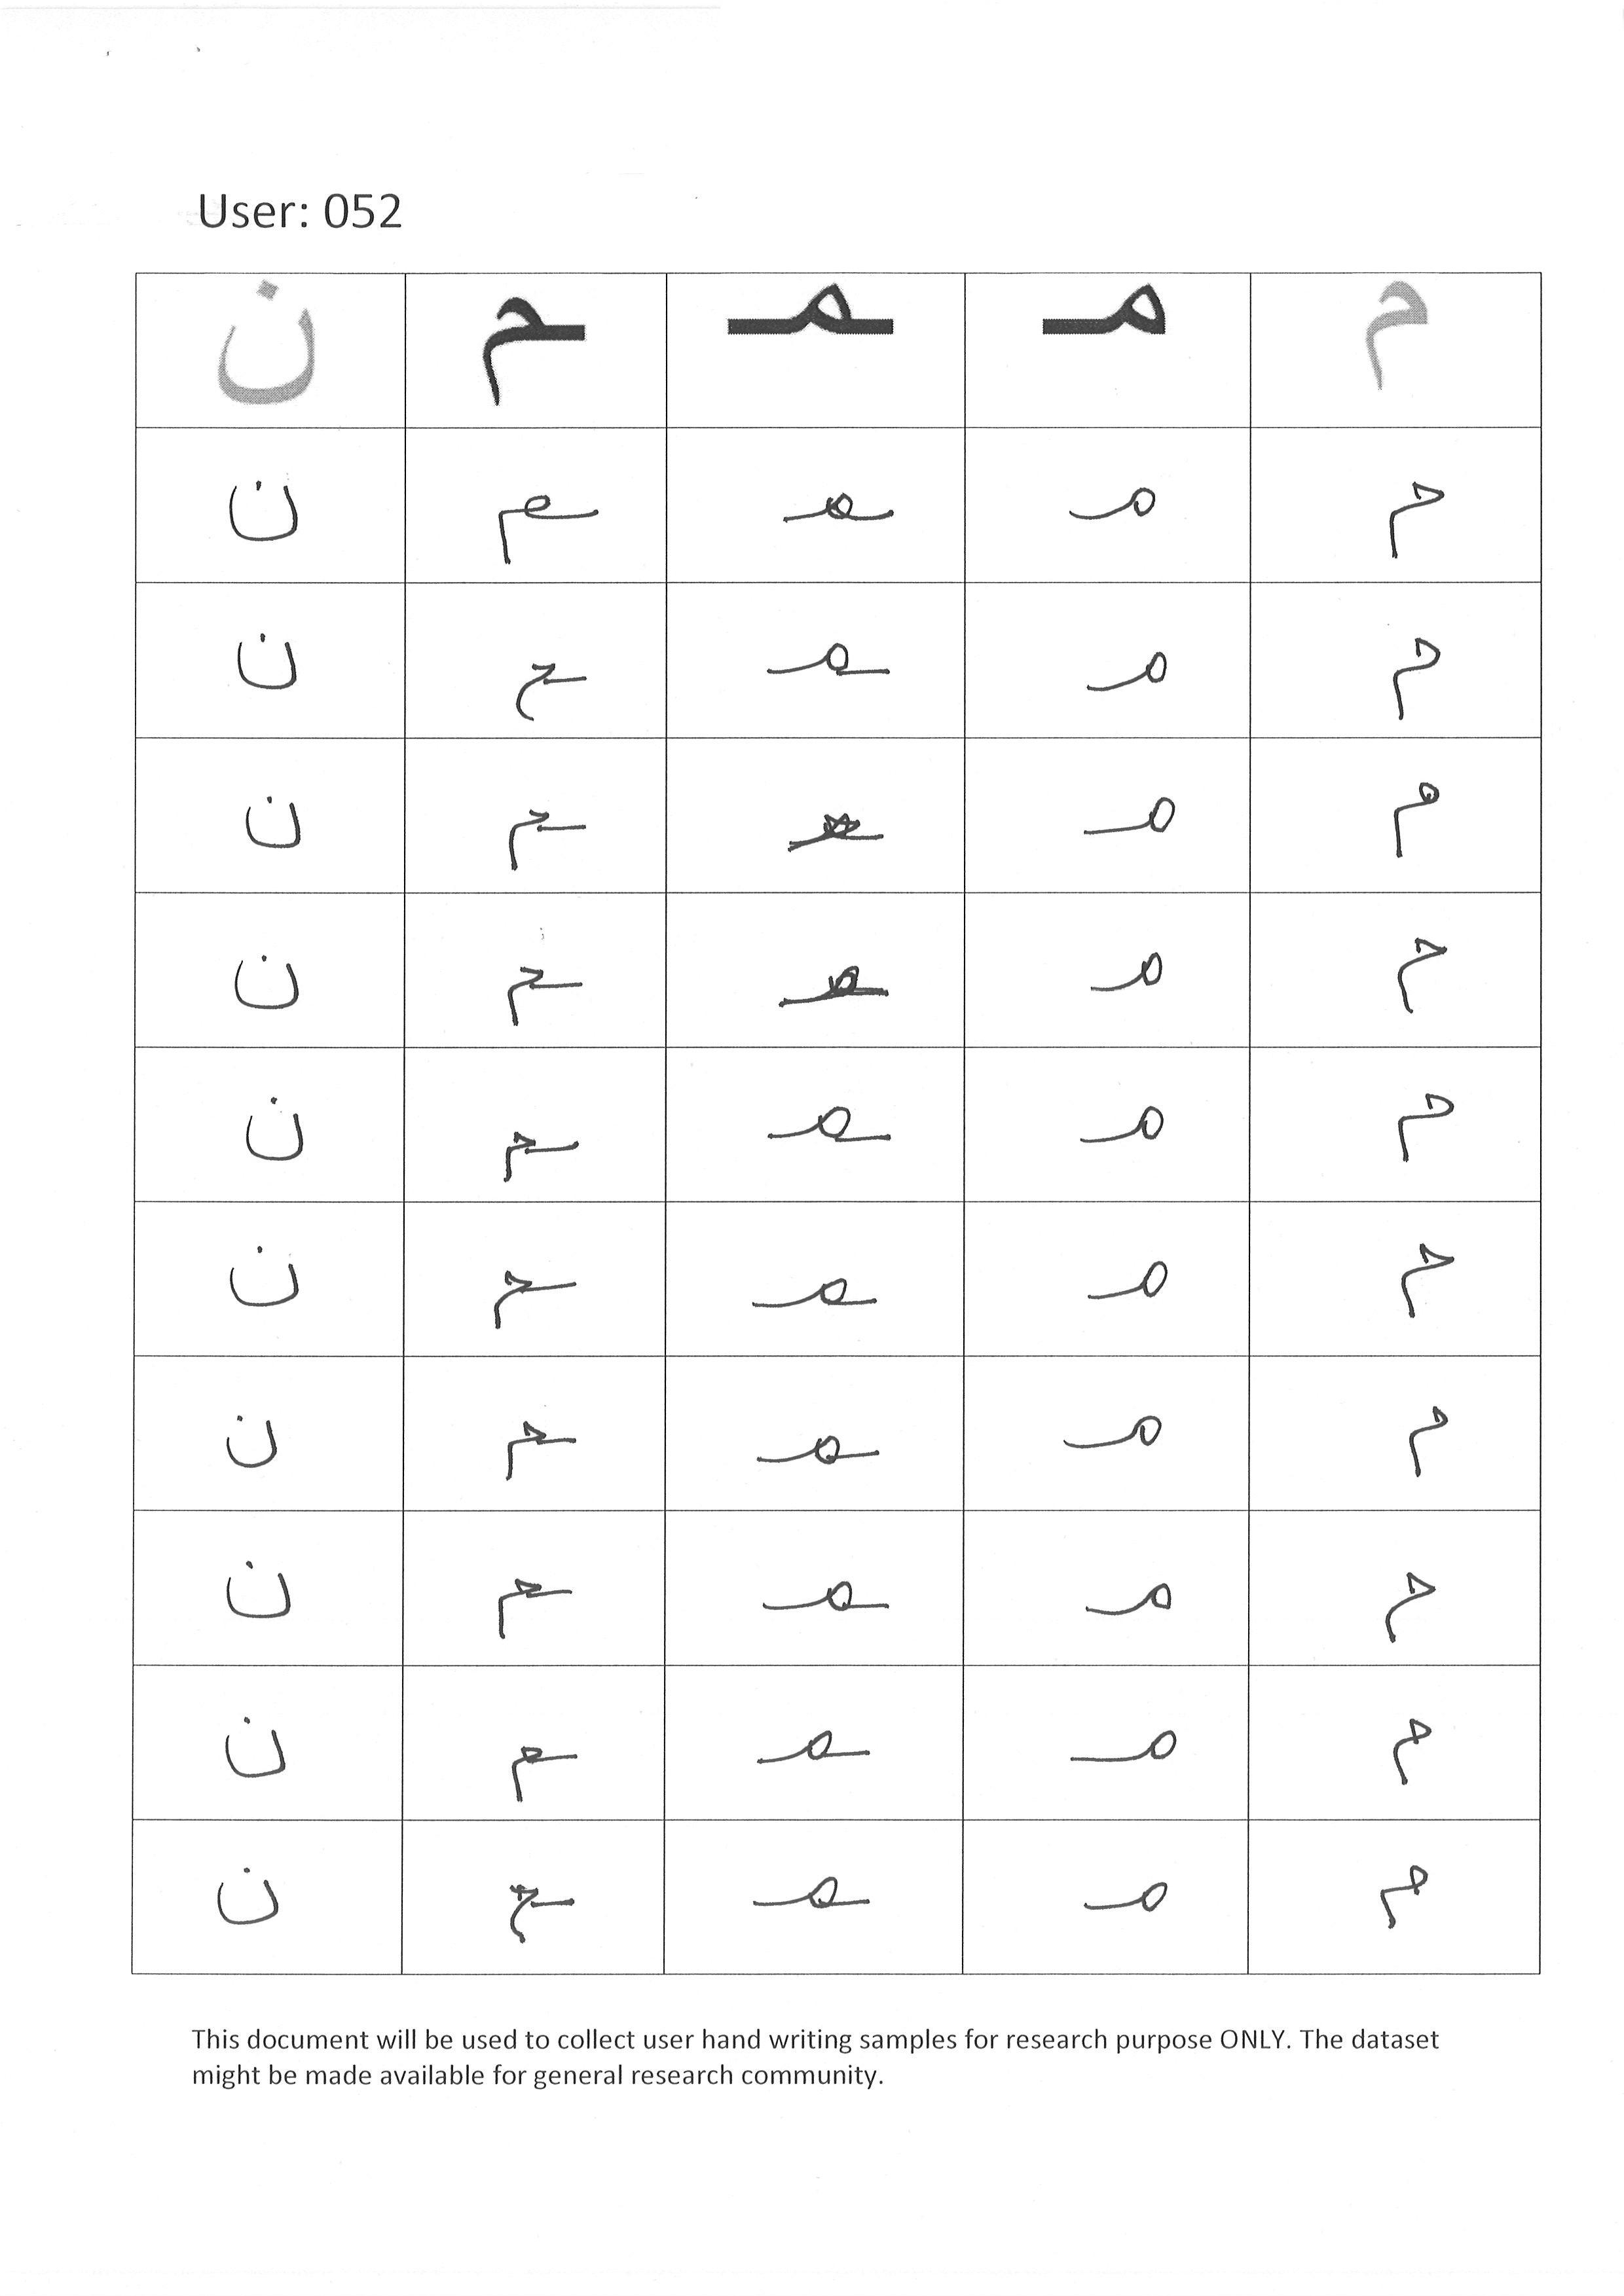 User: 052
م مـ ـمـ ـم ن
م مـ ـمـ ـم ن
م مـ ـمـ ـم ن
م مـ ـمـ ـم ن
م مـ ـمـ ـم ن
م مـ ـمـ ـم ن
م مـ ـمـ ـم ن
م مـ ـمـ ـم ن
م مـ ـمـ ـم ن
م مـ ـمـ ـم ن
م مـ ـمـ ـم ن
This document will be used to collect user hand writing samples for research purpose ONLY. The dataset
might be made available for general research community.